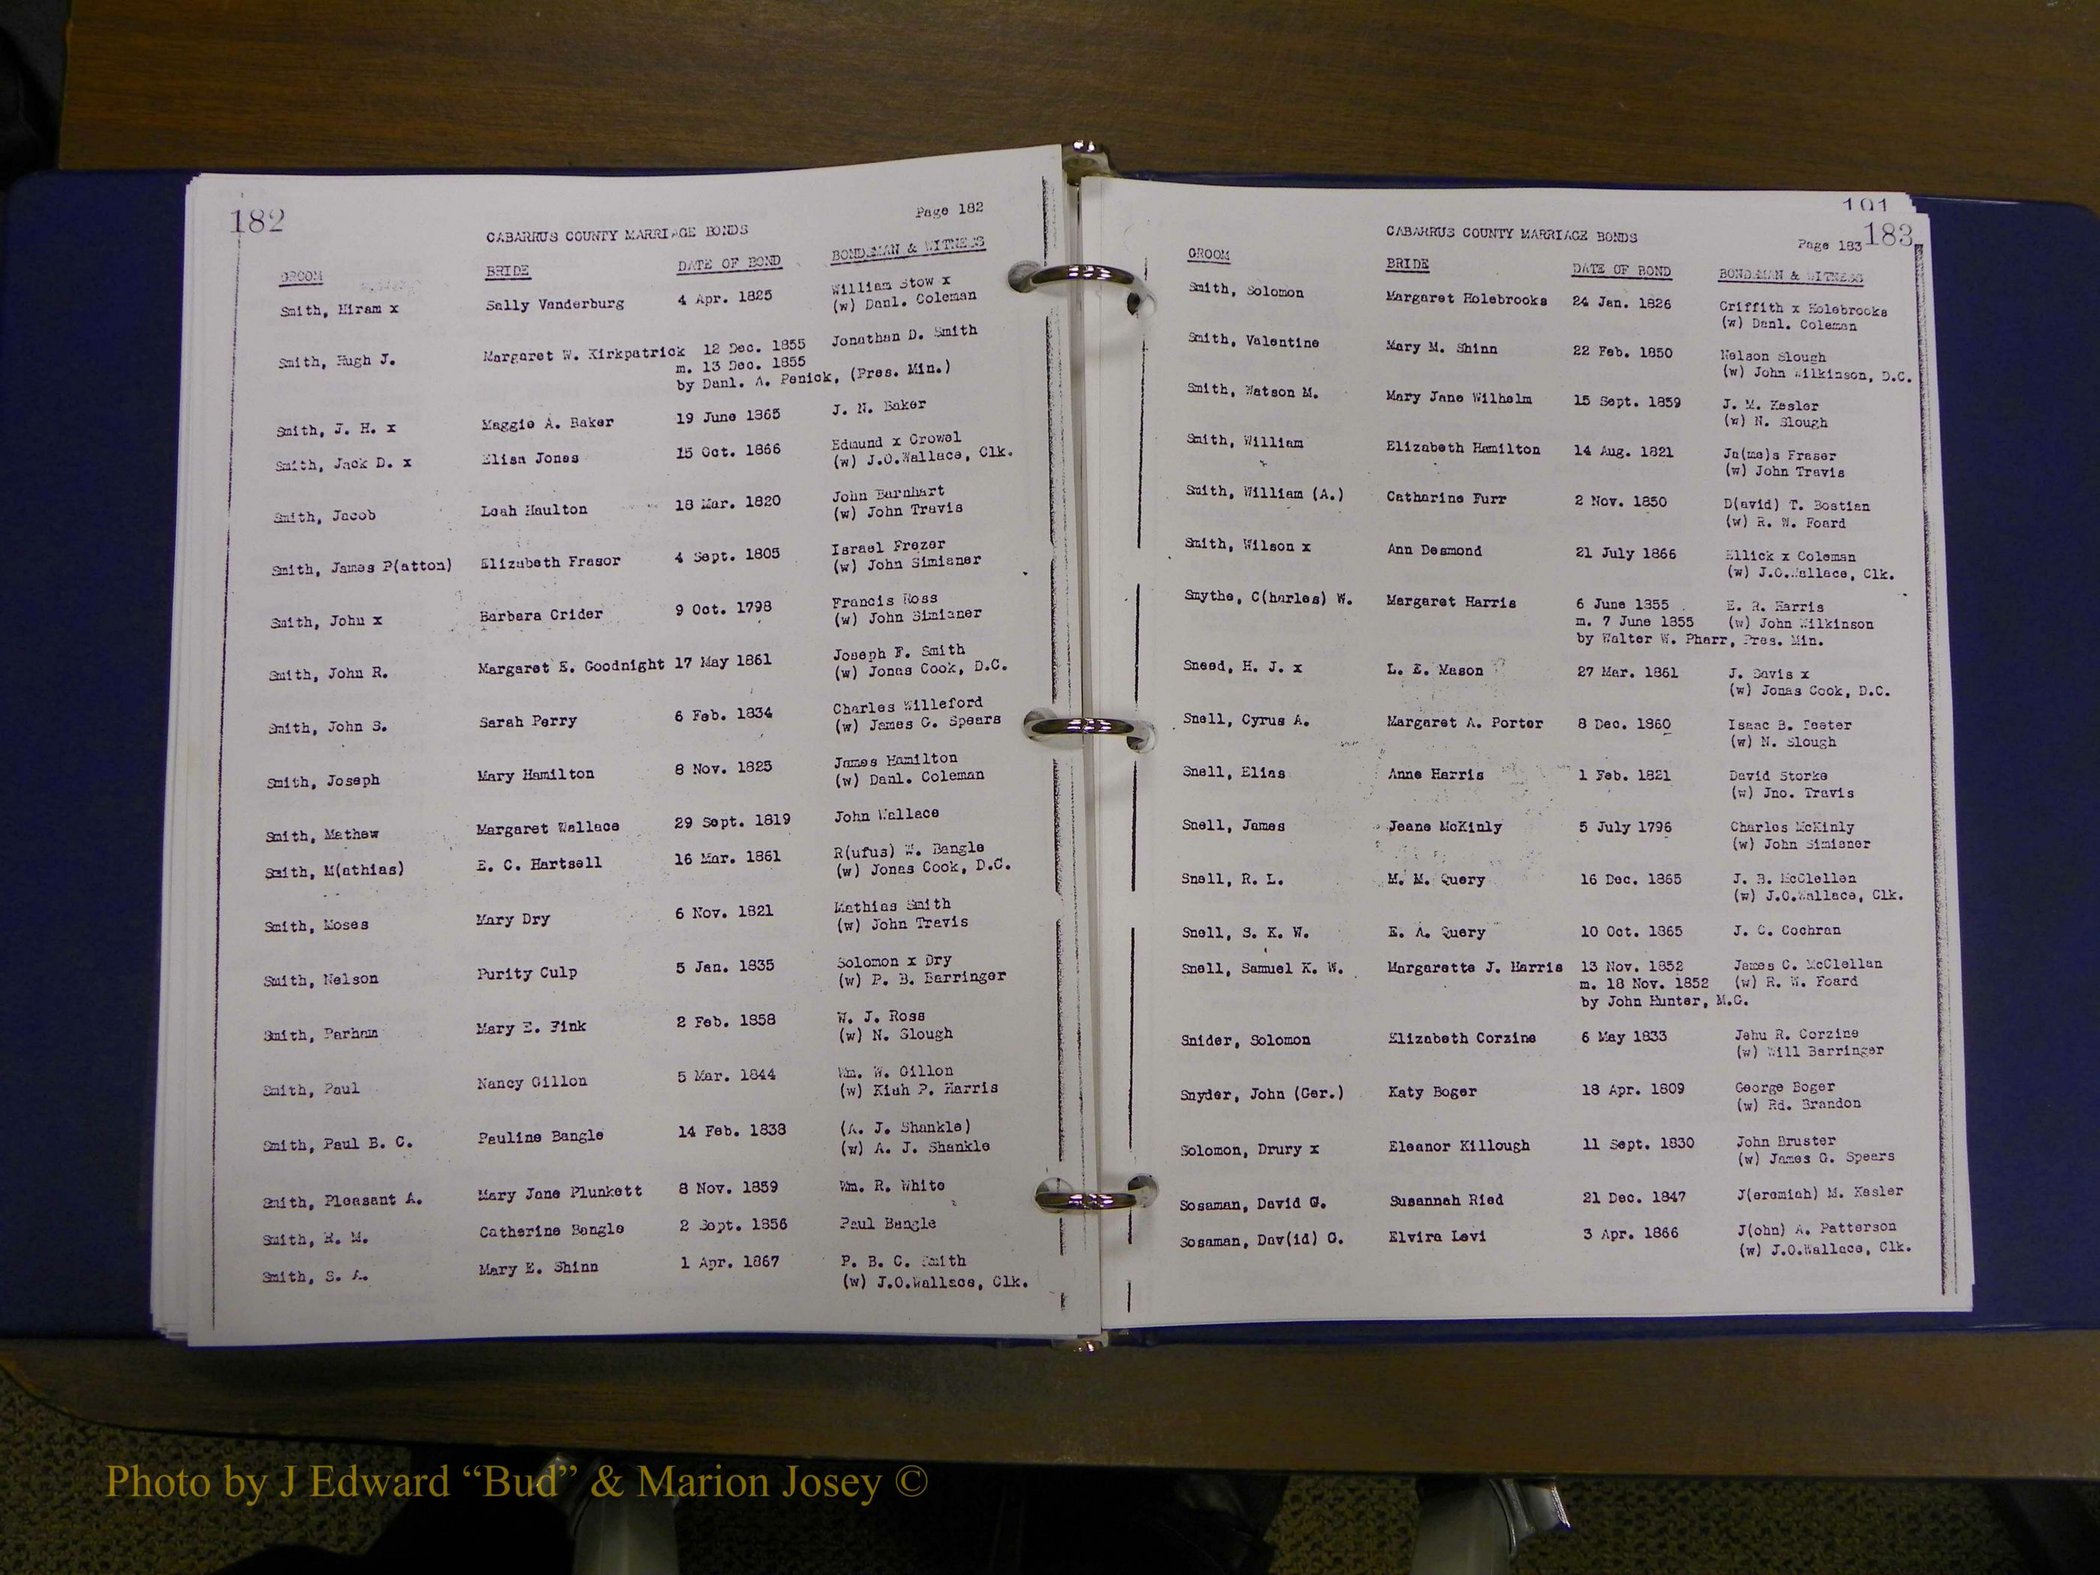 182
Page 182
CABARRUS COUNTY MARRIAGE BONDS
GROOM BRIDE DATE OF BOND BONDSMAN & WITNESS
Smith, Hiram x Sally Vanderburg 4 Apr. 1825 William Stow x
(w) Danl. Coleman
Smith, Hugh J. Margaret W. Kirkpatrick 12 Dec. 1855 Jonathan D. Smith
m. 13 Dec. 1855
by Danl. A. Penick, (Pres. Min.)
Smith, J. H. x Maggie A. Baker 19 June 1865 J. N. Baker
Smith, Jack D. x Elisa Jones 15 Oct. 1866 Edmund x Crowel
(w) J.O.Wallace, Clk.
Smith, Jacob Leah Haulton 18 Mar. 1820 John Barnhart
(w) John Travis
Smith, James P(atton) Elizabeth Frasor 4 Sept. 1805 Israel Frezer
(w) John Simianer
Smith, John x Barbara Crider 9 Oct. 1798 Francis Ross
(w) John Simianer
Smith, John R. Margaret E. Goodnight 17 May 1861 Joseph F. Smith
(w) Jonas Cook, D.C.
Smith, John S. Sarah Perry 6 Feb. 1834 Charles Willeford
(w) James G. Spears
Smith, Joseph Mary Hamilton 8 Nov. 1825 James Hamilton
(w) Danl. Coleman
Smith, Mathew Margaret Wallace 29 Sept. 1819 John Wallace
Smith, M(athias) E. C. Hartsell 16 Mar. 1861 R(ufus) W. Bangle
(w) Jonas Cook, D.C.
Smith, Moses Mary Dry 6 Nov. 1821 Mathias Smith
(w) John Travis
Smith, Nelson Purity Culp 5 Jan. 1835 Solomon x Dry
(w) P. B. Barringer
Smith, Parham Mary E. Fink 2 Feb. 1858 W. J. Ross
(w) N. Slough
Smith, Paul Nancy Gillon 5 Mar. 1844 Wm. W. Gillon
(w) Kiah P. Harris
Smith, Paul B. C. Pauline Bangle 14 Feb. 1838 (A. J. Shankle)
(w) A. J. Shankle
Smith, Pleasant A. Mary Jane Plunkett 8 Nov. 1859 Wm. R. White
Smith, R. M. Catherine Bangle 2 Sept. 1856 Paul Bangle
Smith, S. A. Mary E. Shinn 1 Apr. 1867 P. B. C. Smith
(w) J.O.Wallace, Clk.
191
183
CABARRUS COUNTY MARRIAGE BONDS Page 183
GROOM BRIDE DATE OF BOND BONDSMAN & WITNESS
Smith, Solomon Margaret Holebrooks 24 Jan. 1826 Griffith x Holebrooks
(w) Danl. Coleman
Smith, Valentine Mary M. Shinn 22 Feb. 1850 Nelson Slough
(w) John Wilkinson, D.C.
Smith, Watson M. Mary Jane Wilhelm 15 Sept. 1859 J. M. Kesler
(w) N. Slough
Smith, William Elizabeth Hamilton 14 Aug. 1821 Ja(me)s Fraser
(w) John Travis
Smith, William (A.) Catharine Furr 2 Nov. 1850 D(avid) T. Bostian
(w) R. W. Foard
Smith, Wilson x Ann Desmond 21 July 1866 Ellick x Coleman
(w) J.O.Wallace, Clk.
Smythe, C(harles) W. Margaret Harris 6 June 1855 E. R. Harris
m. 7 June 1855 (w) John Wilkinson
by Walter W. Pharr, Pres. Min.
Sneed, H. J. x L. E. Mason 27 Mar. 1861 J. Davis x
(w) Jonas Cook, D.C.
Snell, Cyrus A. Margaret A. Porter 8 Dec. 1860 Isaac B. Teeter
(w) N. Slough
Snell, Elias Anne Harris 1 Feb. 1821 David Storke
(w) Jno. Travis
Snell, James Jeane McKinly 5 July 1796 Charles McKinly
(w) John Simianer
Snell, R. L. M. M. Query 16 Dec. 1865 J. B. McClellen
(w) J.O.Wallace, Clk.
Snell, S. K. W. E. A. Query 10 Oct. 1865 J. C. Cochran
Snell, Samuel K. W. Margarette J. Harris 13 Nov. 1852 James C. McClellan
m. 18 Nov. 1852 (w) R. W. Foard
by John Hunter, M.G.
Snider, Solomon Elizabeth Corzine 6 May 1833 Jehu R. Corzine
(w) Will Barringer
Snyder, John (Ger.) Katy Boger 18 Apr. 1809 George Boger
(w) Rd. Brandon
Solomon, Drury x Eleanor Killough 11 Sept. 1830 John Bruster
(w) James G. Spears
Sosaman, David G. Susannah Ried 21 Dec. 1847 J(eremiah) M. Kesler
Sosaman, Dav(id) G. Elvira Levi 3 Apr. 1866 J(ohn) A. Patterson
(w) J.O.Wallace, Clk.
Photo by J Edward “Bud” & Marion Josey ©